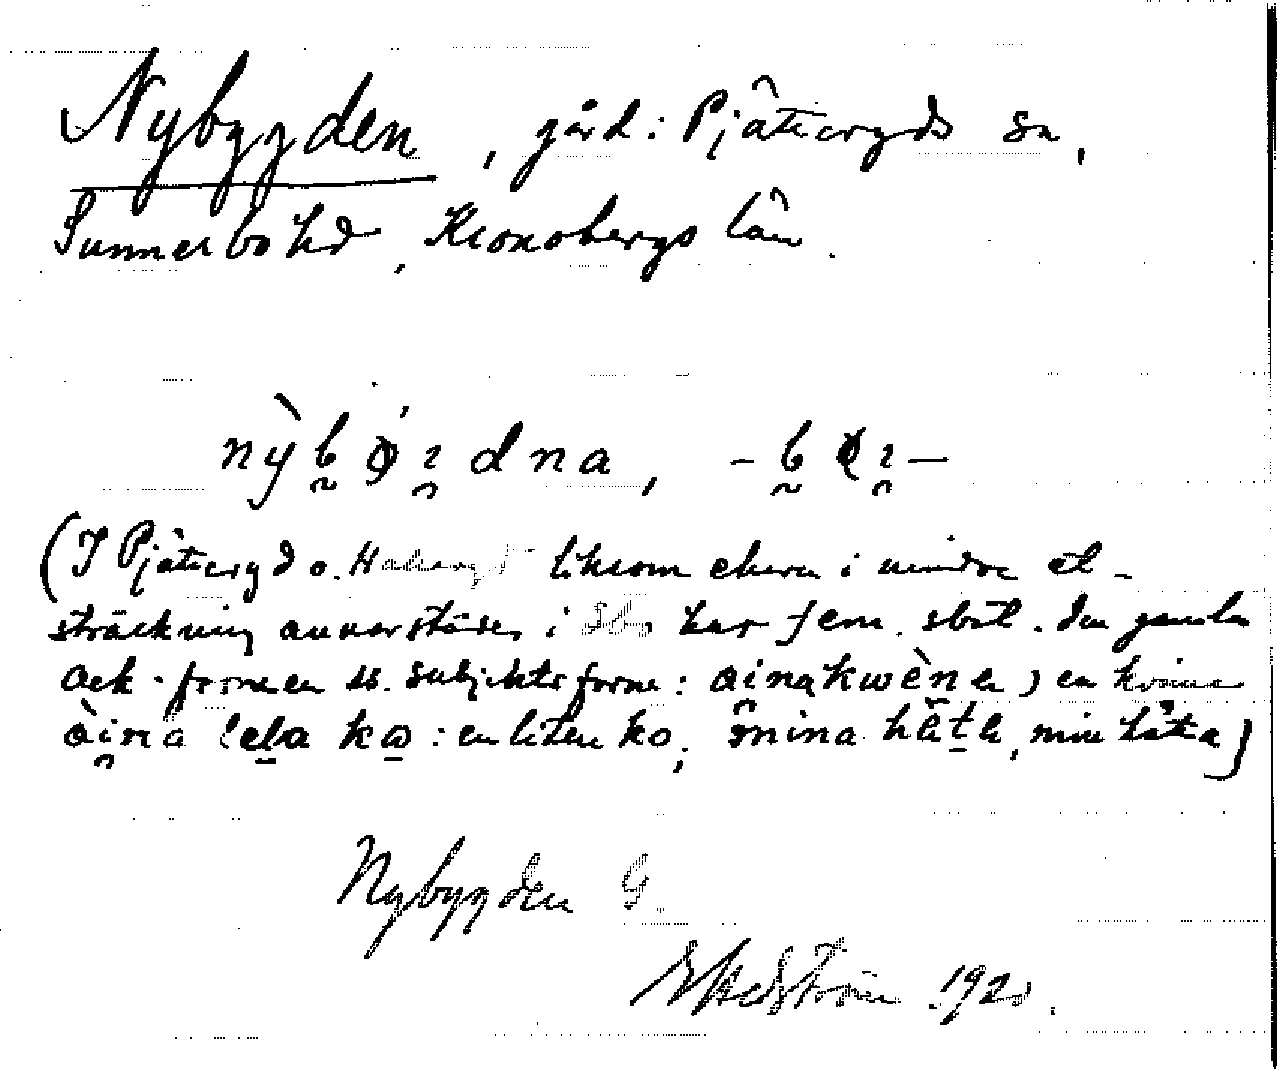 Nybygden, gård: Pjätteryds sn,
Sunnerbo hd, Kronobergs län.
nỳbøɿdna, -bøɿ-
(I Pjätteryd o. liksom även i mindre ut-
sträckning annorstädes i har fem. sbst. den gamla
ack.formen ss. subjektsform: ainakwènɐ, en kvinna
àina lela ko: en liten ko, mina hätɐ, min hätta)
Nybygden G.
1920.